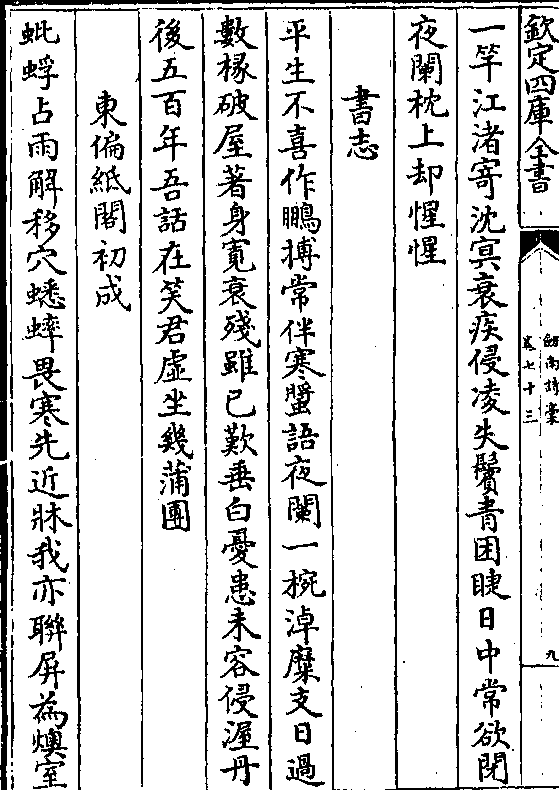 欽定四庫全書
劍南詩稾
卷七十三
九
一竿江渚寄沈冥衰疾侵凌失鬢青困睫日中常欲閉
夜闌枕上却惺惺
書志
平生不喜作鵬摶常伴寒螿語夜闌一椀淖糜支日過
數椽破屋著身寛衰殘雖已歎垂白憂患未容侵渥丹
後五百年吾話在笑君虛坐幾蒲團
東偏紙閣初成
蚍蜉占雨解移穴蟋蟀畏寒先近牀我亦聯屏為燠室